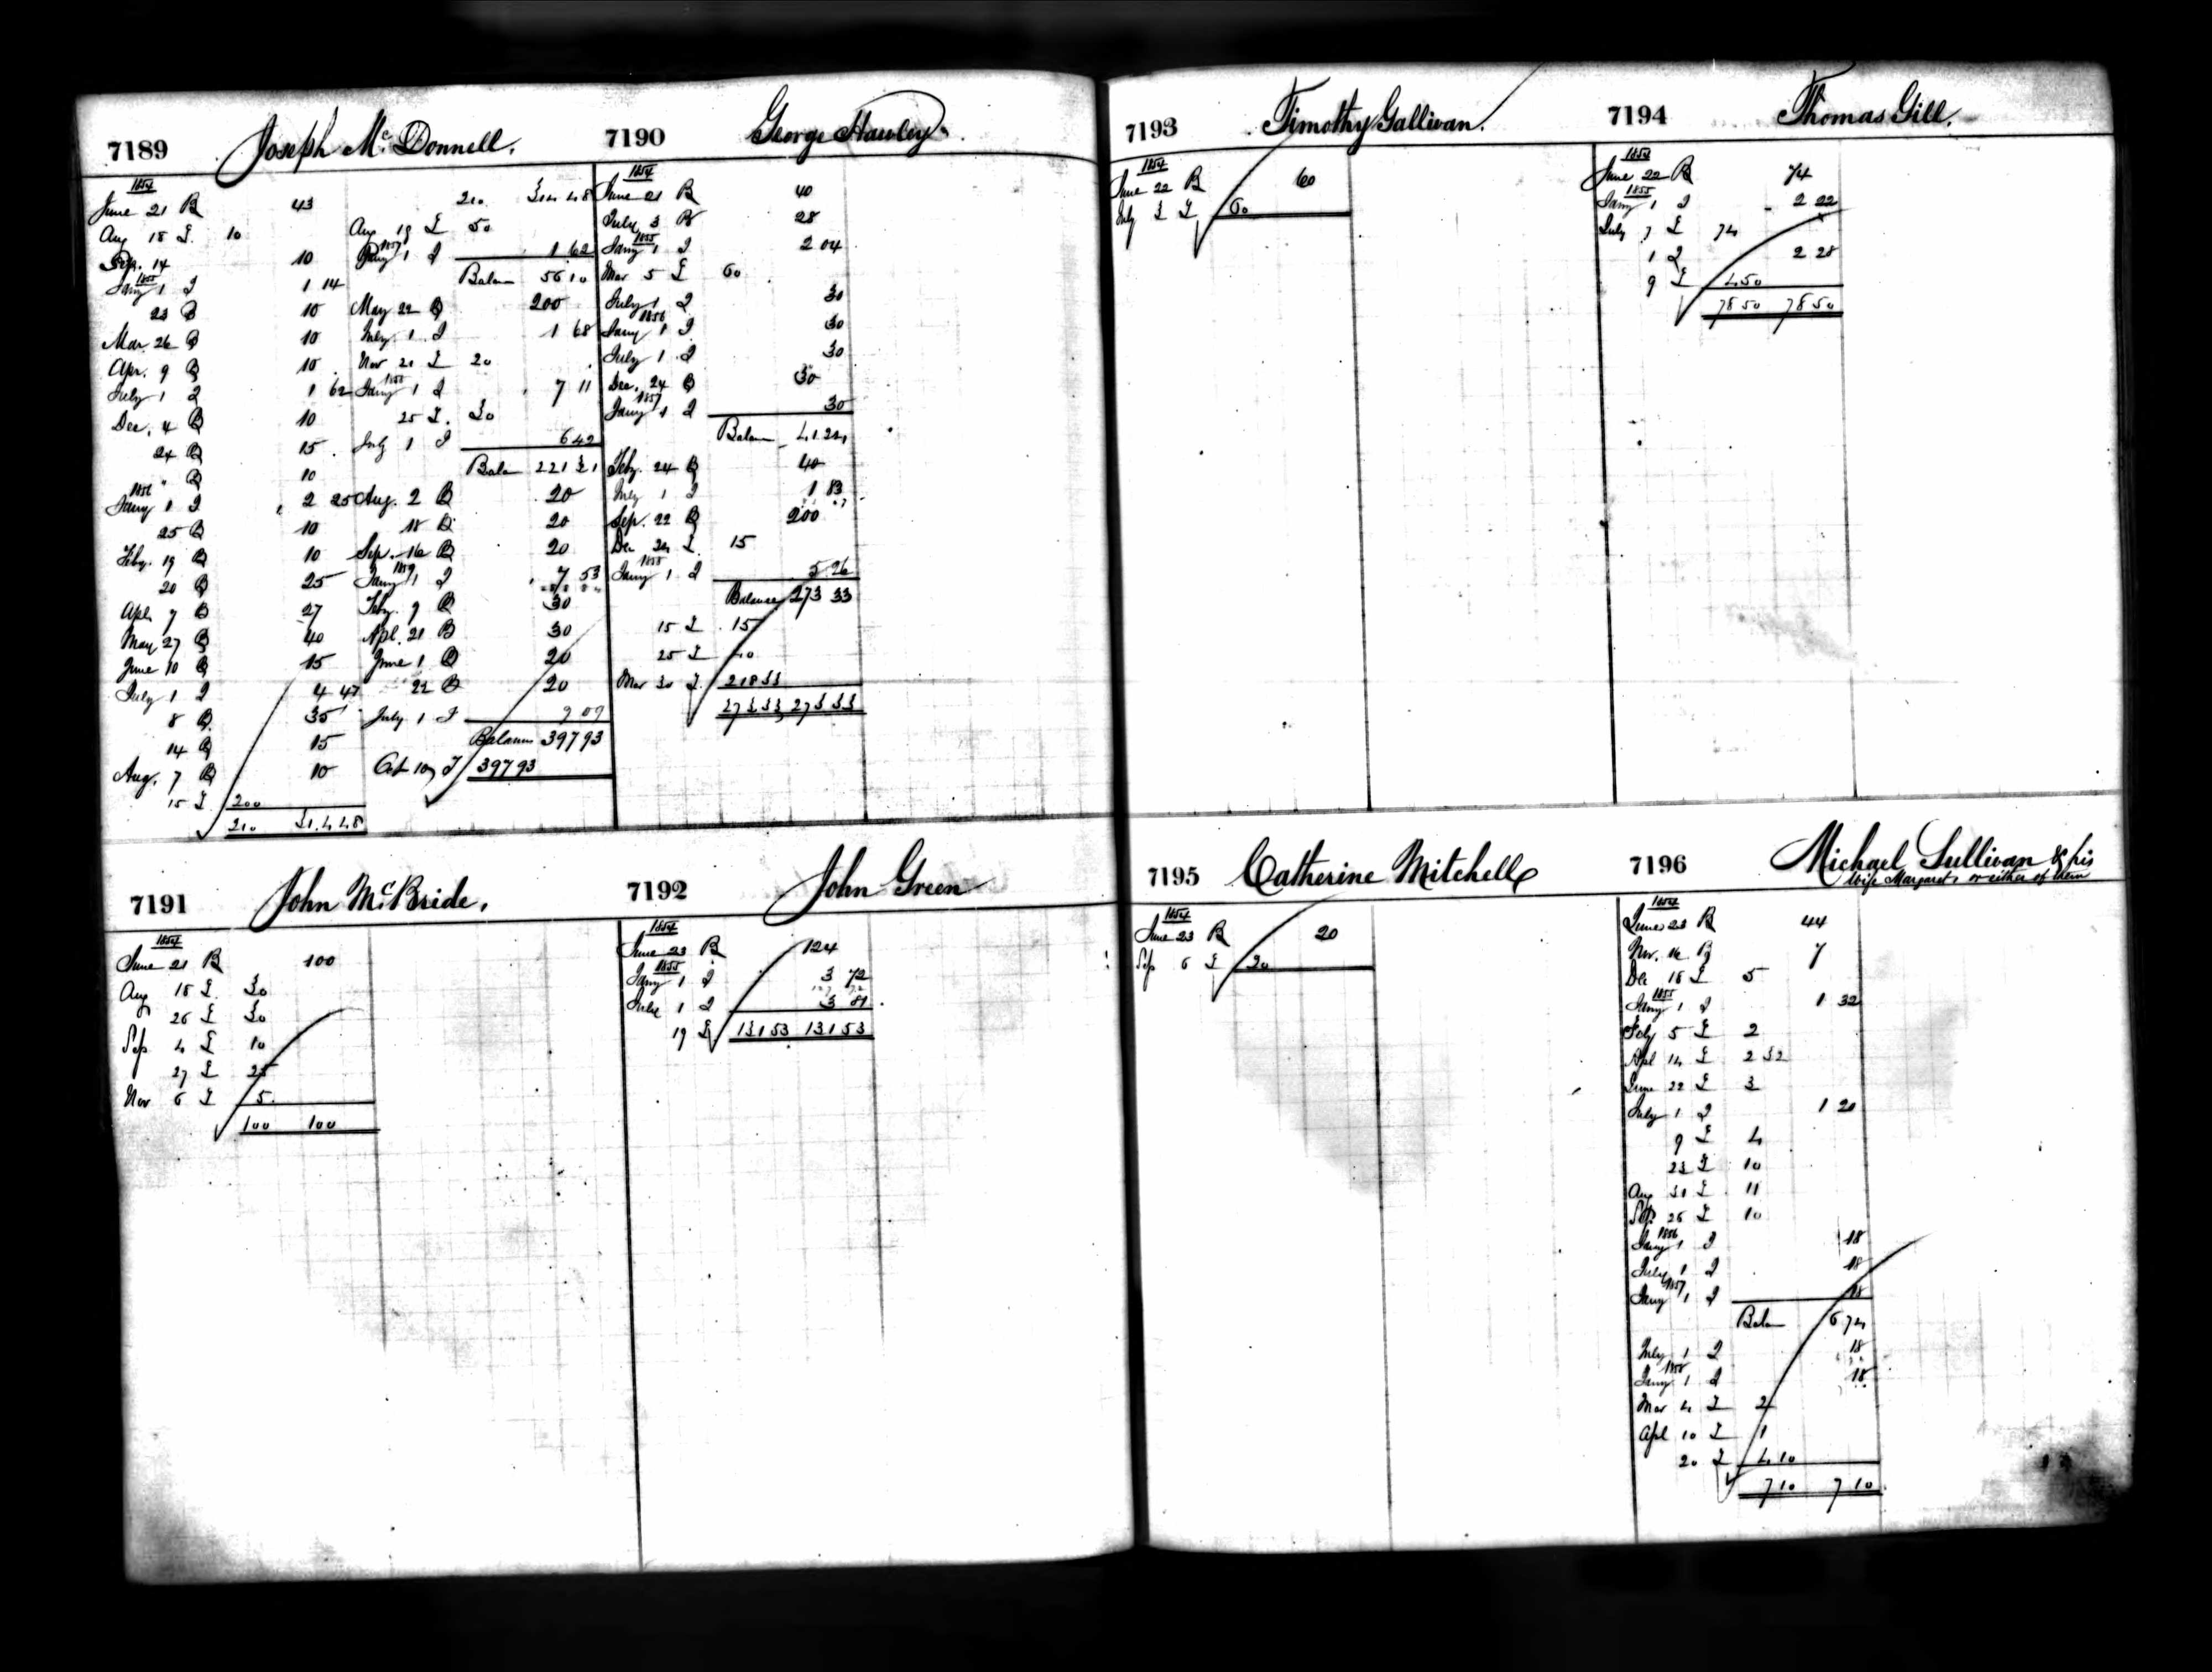 7189 Joseph McDonnell.
1854
June 21 B 43
Aug 18 10
Sep. 14 10
1855
Jany 1 1 14
23 B 10
Mar. 26 B 10
Apr. 9 B 10
July 1 1 62
Dec. 4 B 10
24 B 15
" B 10
1856
Jany 1 2 25
25 B 10
Feby. 19 B 10
20 B 25
Apl. 7 B 27
May 27 B 40
June 10 B 15
July 1 4 47
8 B 35
14 B 15
Aug. 7 B 10
15 200
210 314 48
210 314 48
Aug 19 50
1857
Jany 1 1 62
Balan 56 10
May 22 B 200
July 1 1 68
Nov 21 20
1858
Jany 1 7 11
25 30
July 1 6 42
Balan 221 31
Aug. 2 B 20
18 B 20
Sep. 16 B 20
1859
Jany 1 7 53
Feby. 9 B 30
Apl. 21 B 30
June 1 B 20
22 B 20
July 1 9 09
Balance 397 93
Oct 10 397 93
7190 George Hawley
1854
June 21 B 40
July 3 B 28
1855
Jany 1 2 04
Mar 5 60
July 1 30
1856
Jany 1 30
July 1 30
Dec. 24 B 30
1857
Jany 1 30
Balan 41 24
Feby. 24 B 40
July 1 1 83
Sep. 22 B 200
Dec 24 15
1858
Jany 1 5 26
Balance 273 33
15 15
25 40
Mar 30 218 33
273 33 273 33
7191 John McBride.
1854
June 21 B 100
Aug 18 30
26 30
Sep 4 10
27 25
Nov 6 5
100 100
7192 John Green
1854
June 23 B 124
1855
Jany 1 3 72
July 1 3 81
19 131 53 131 53
7193 Timothy Gallivan.
1854
June 22 B 60
July 3 60
7194 Thomas Gill.
1854
June 22 B 74
1855
Jany 1 2 22
July 7 74
1 2 28
9 4 50
78 50 78 50
7195 Catherine Mitchell
1854
June 23 B 20
Sep 6 20
7196 Michael Sullivan & his
wife Margaret, or either of them
1854
June 23 B 44
Nov. 16 B 7
Dec 18 5
1855
Jany 1 1 32
Feby 5 2
Apl 14 2 32
June 22 3
July 1 1 20
9 4
23 10
Aug 31 11
Sep. 26 10
1856
Jany 1 18
July 1 18
1857
Jany 1 18
Balan 6 74
July 1 18
1858
Jany 1 18
Mar 4 2
Apl 10 1
20 4 10
7 10 7 10